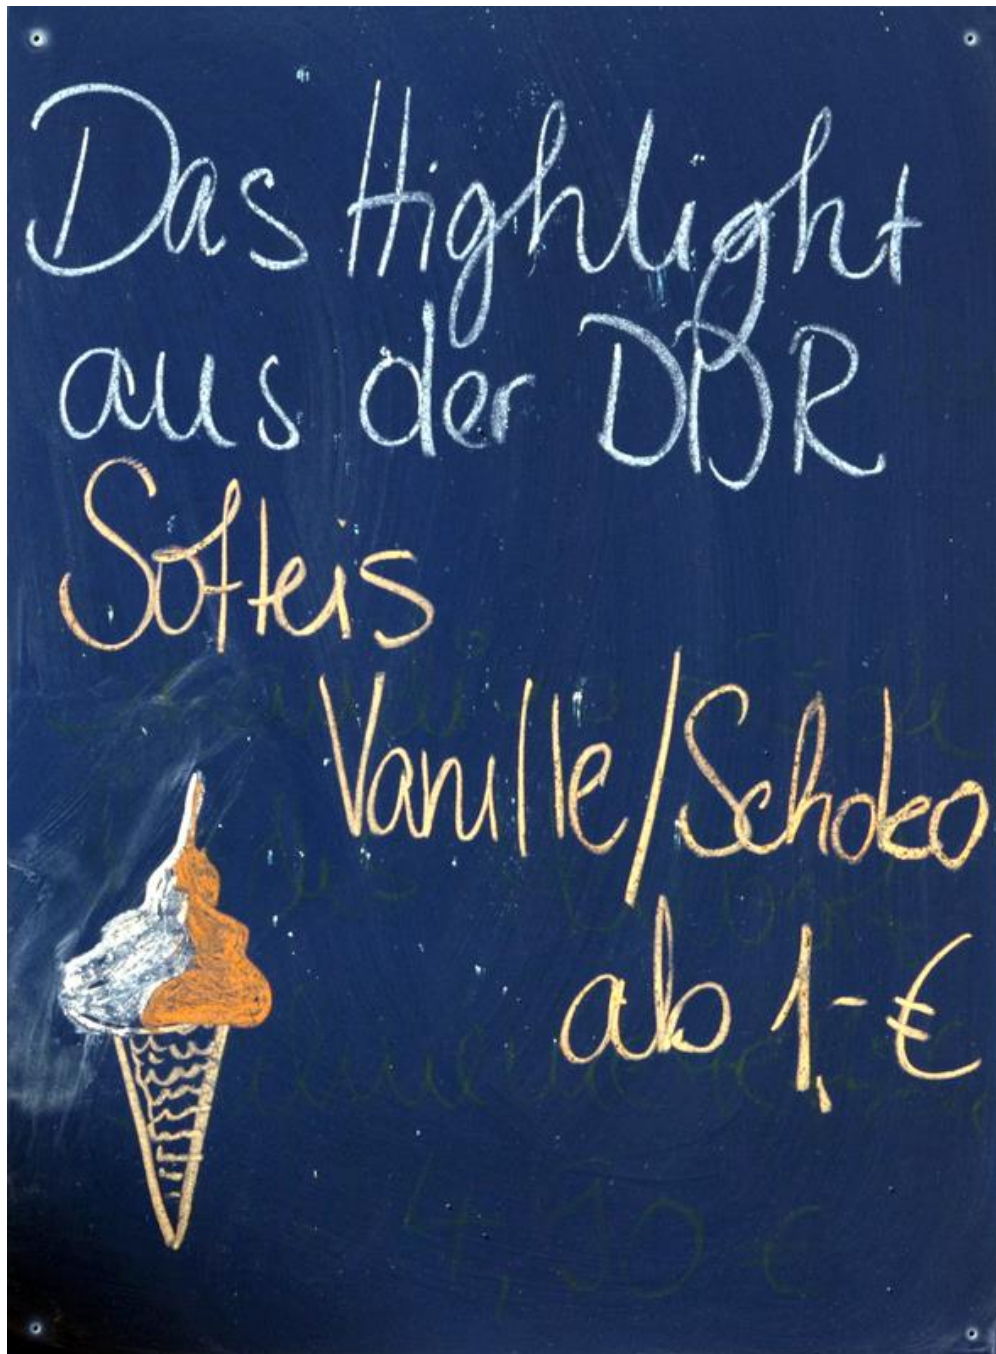 Das Highlight
aus der DDR
Softeis
Vanille/Schoko
ab 1,- €
4,50 €